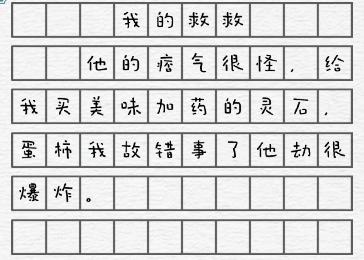 我的救救
他的痞气很怪，给
我买美味加药的灵石，
蛋柿我故错事了他劫很
爆炸。